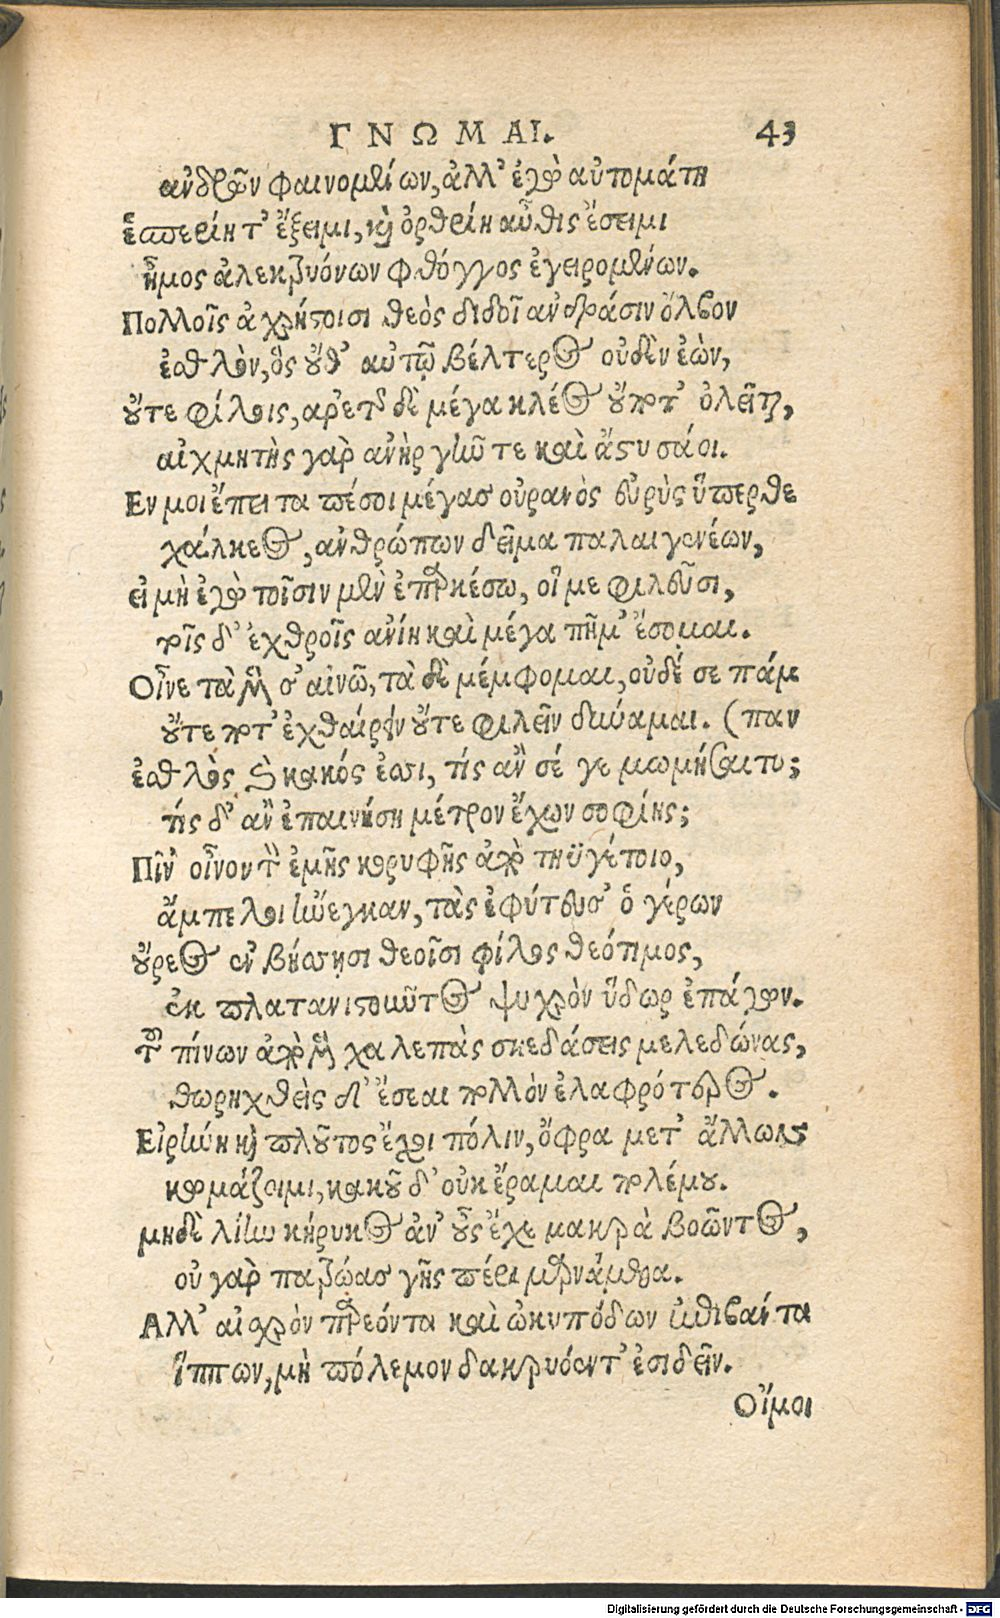 ΓΝΩΜΑΙ. 43
ἀνδρῶν φαινομένων, ἀλλ' ἐγὼ αὐτομάτη
ἑσπερίη τ' ἔξειμι, καὶ ὀρθρίη αὖθις ἔσειμι
ἦμος ἀλεκτρυόνων φθόγγος ἐγειρομένων.
Πολλοῖς ἀχρήστοισι θεὸς διδοῖ ἀνδράσιν ὄλβον
ἐσθλὸν, ὃς οὔθ' αὑτῷ βέλτερος οὐδὲν ἐὼν,
οὔτε φίλοις, ἀρετῆς δὲ μέγα κλέος οὔποτ' ὀλεῖται,
αἰχμητὴς γὰρ ἀνὴρ γῆν τε καὶ ἄστυ σάοι.
Εν μοι ἔπειτα πέσοι μέγας οὐρανὸς εὐρὺς ὕπερθε
χάλκεος, ἀνθρώπων δεῖμα παλαιγενέων,
εἰ μὴ ἐγὼ τοῖσιν μὲν ἐπαρκέσω, οἵ με φιλεῦσι,
τοῖς δ' ἐχθροῖς ἀνίη καὶ μέγα πῆμ' ἔσομαι.
Οἶνε τὰ μέν σ' αἰνῶ, τὰ δὲ μέμφομαι, οὐδέ σε πάμ-
οὔτε ποτ' ἐχθαίρειν οὔτε φιλεῖν δύναμαι. (παν
ἐσθλὸς καὶ κακός ἐσσι, τίς ἂν σέ γε μωμήσαιτο;
τίς δ' ἂν ἐπαινήσῃ μέτρον ἔχων σοφίης;
Πῖν' οἶνον τὸν ἐμῆς κορυφῆς ἀπὸ τηϋγέτοιο,
ἄμπελοι ἤνεγκαν, τὰς ἐφύτευσ' ὁ γέρων
οὔρεος ἐν βήσσῃσι θεοῖσι φίλος θεότιμος,
ἐκ πλατανιστοῦντος ψυχρὸν ὕδωρ ἐπάγων.
τοῦ πίνων ἀπὸ μὲν χαλεπὰς σκεδάσεις μελεδώνας,
θωρηχθεὶς δ' ἔσεαι πολλὸν ἐλαφρότερος.
Εἰρήνη καὶ πλοῦτος ἔχοι πόλιν, ὄφρα μετ' ἄλλων
κωμάζοιμι, κακοῦ δ' οὐκ ἔραμαι πολέμου.
μηδὲ λίην κήρυκος ἀν' οὖς ἔχε μακρὰ βοῶντος,
οὐ γὰρ πατρώας γῆς πέρι μαρνάμεθα.
Αλλ' αἰσχρὸν παρεόντα καὶ ὠκυπόδων ἐπιβάντα
ἵππων, μὴ πόλεμον δακρυόεντ' ἐσιδεῖν.
Οἴμοι
Digitalisierung gefördert durch die Deutsche Forschungsgemeinschaft - DFG